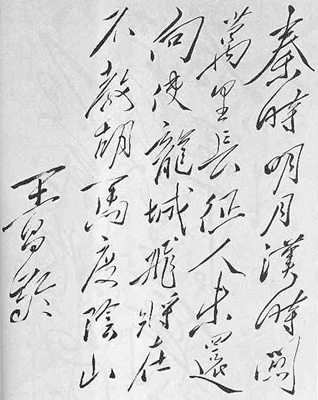 秦時明月漢時關
萬里長征人未還
向使龍城飛將在
不教胡馬度陰山
王昌齡